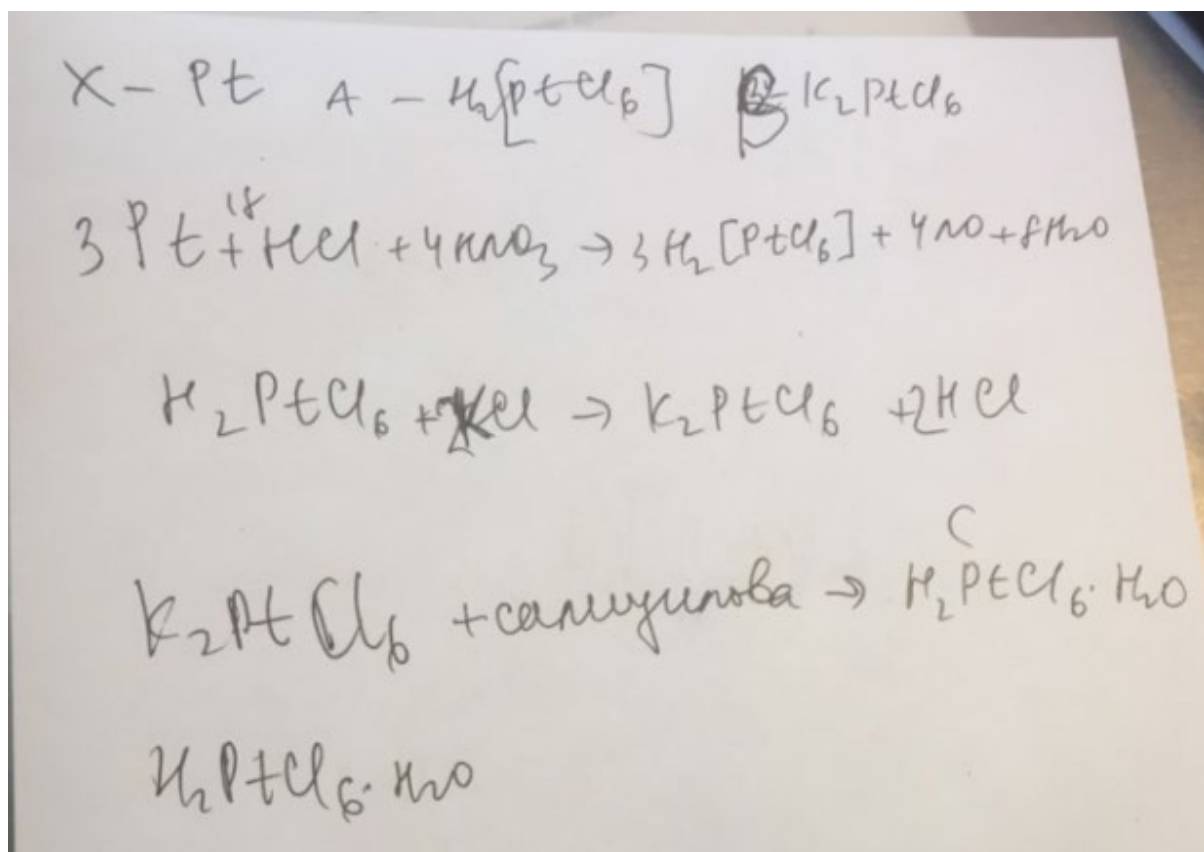 X - Pt A - H₂[PtCl₆] B - K₂PtCl₆
3Pt + 18HCl + 4HNO₃ → 3H₂[PtCl₆] + 4NO + 8H₂O
H₂PtCl₆ + 2KCl → K₂PtCl₆ + 2HCl
C
K₂PtCl₆ + → H₂PtCl₆·H₂O
H₂PtCl₆·H₂O